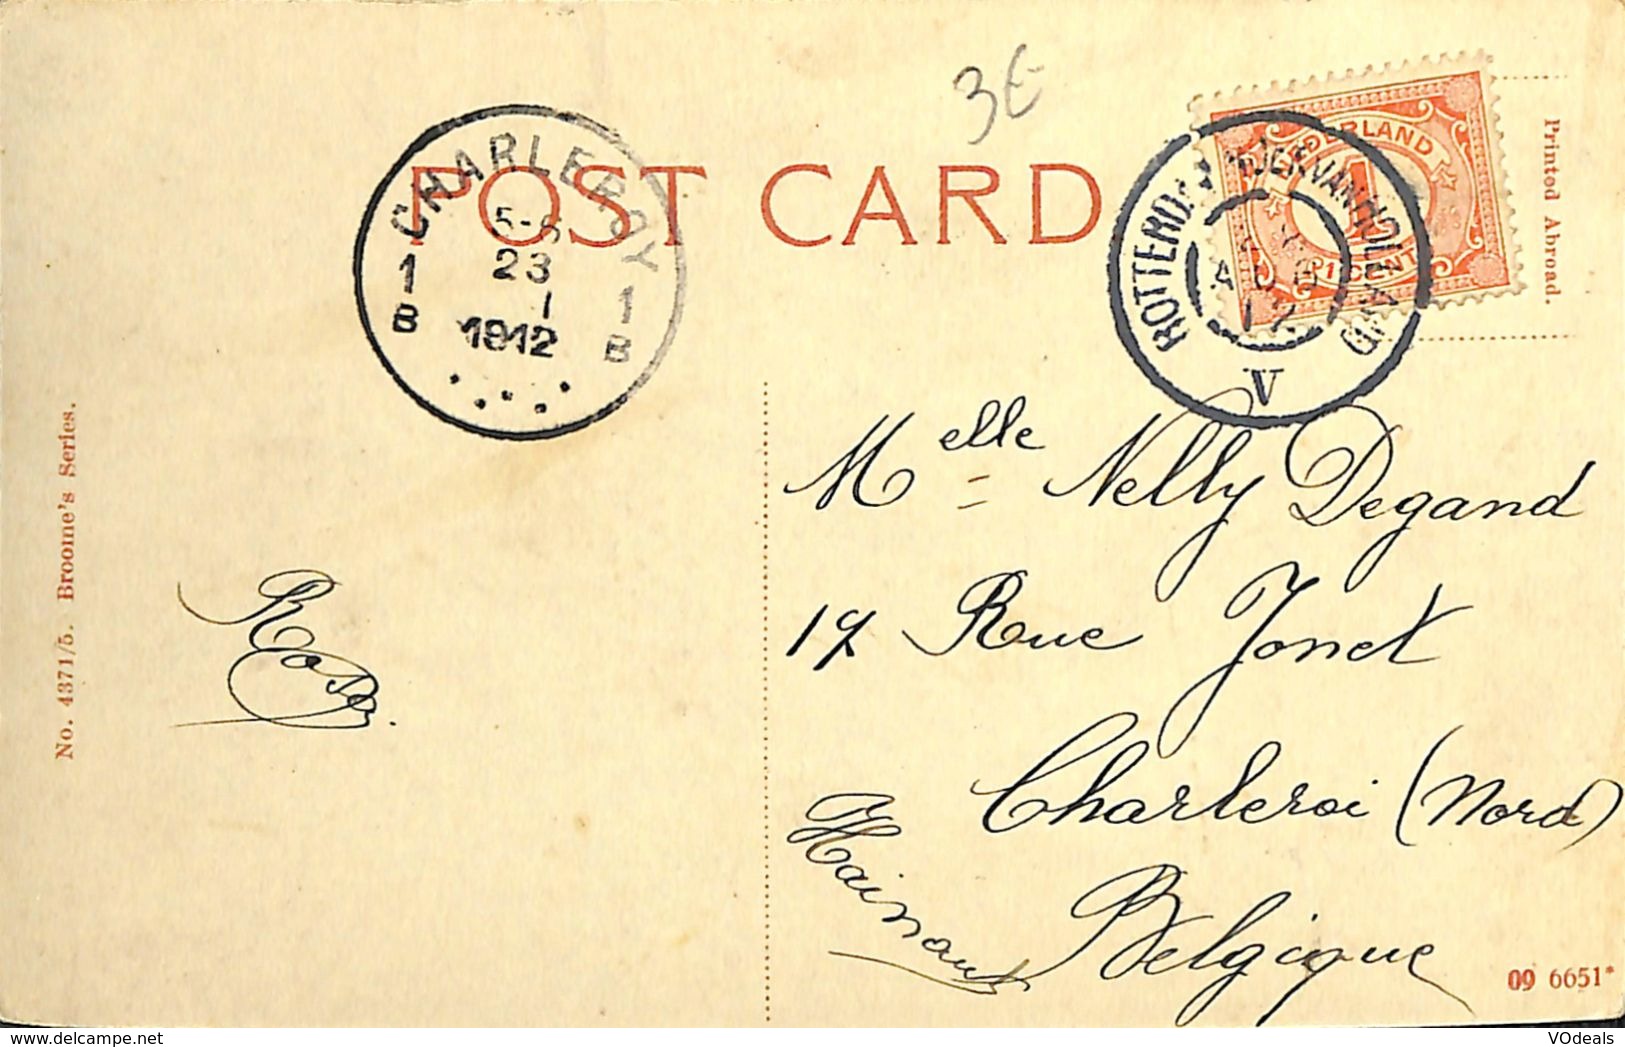 3€
POST CARD
CHARLEROY
5-6
23
1
1912
1
B
1
B
NEDERLAND
1
1 CENT
ROTTERDAM-HOEK VAN HOLLAND
12
V
Printed Abroad.
No. 4371/5. Broome's Series.
Melle Nelly Degand
17 Rue Jonet
Charleroi (Nord)
Hainaut
Belgique
Rosa.
09 6651*
VOdeals